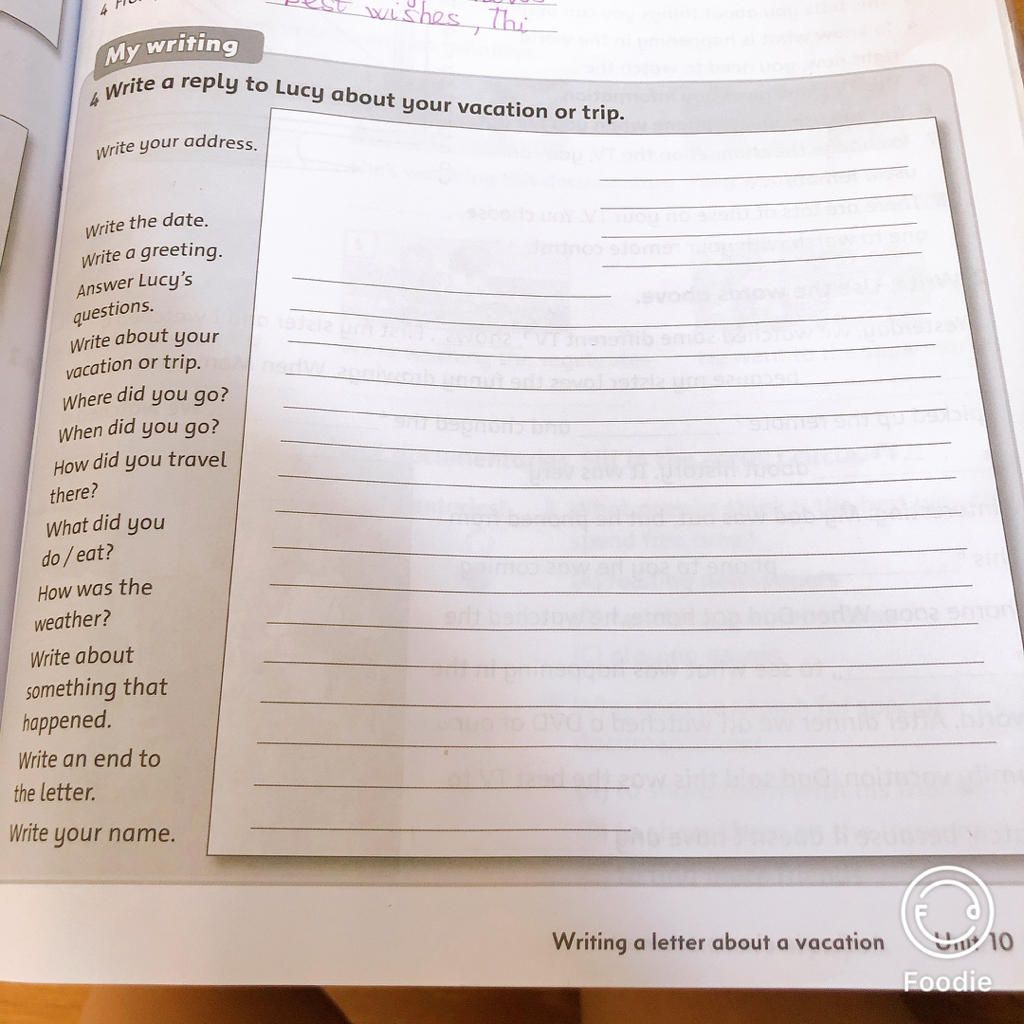 best wishes, Thi
My writing
4 Write a reply to Lucy about your vacation or trip.
Write your address.
Write the date.
Write a greeting.
Answer Lucy's
questions.
Write about your
vacation or trip.
Where did you go?
When did you go?
How did you travel
there?
What did you
do / eat?
How was the
weather?
Write about
something that
happened.
Write an end to
the letter.
Write your name.
Writing a letter about a vacation Unit 10
Foodie